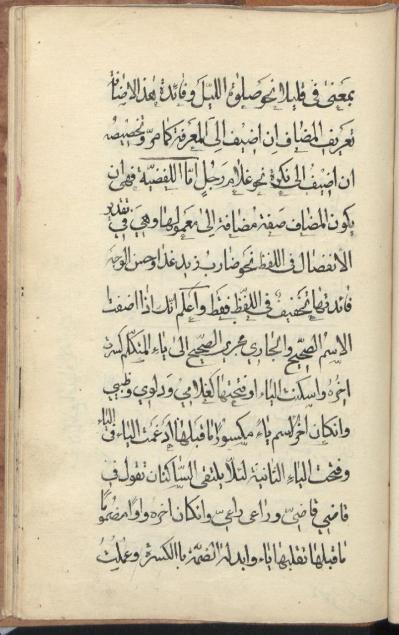 بمعنى في قليلا نحو صلوة الليل وفائدة هذه الاضافة
تعريف المضاف ان اضيف الى المعرفة كما مر وتخصيصه
ان اضيف الى نكرة نحو غلام رجل اما اللفظية فهي ان
يكون المضاف صفة مضافة الى معمولها وهي في تقدير
الانفصال في اللفظ نحو ضارب زيد غدا وحسن الوجه
فائدتها تخفيف في اللفظ فقط واعلم انك اذا اضفت
الاسم الصحيح والجاري مجرى الصحيح الى ياء المتكلم كسرت
اخره واسكنت الياء او فتحتها كغلامي ودلوي وظبيي
وانكان اخر الاسم ياء مكسورا ما قبلها ادغمت الياء في الياء
وفتحت الياء الثانية لئلا يلتقى الساكنان تقول في
قاضي قاضيّ وراعى راعيّ وانكان اخره واوا مضموما
ما قبلها تقلبها ياء وابدلة الضمة بالكسرة وعملت